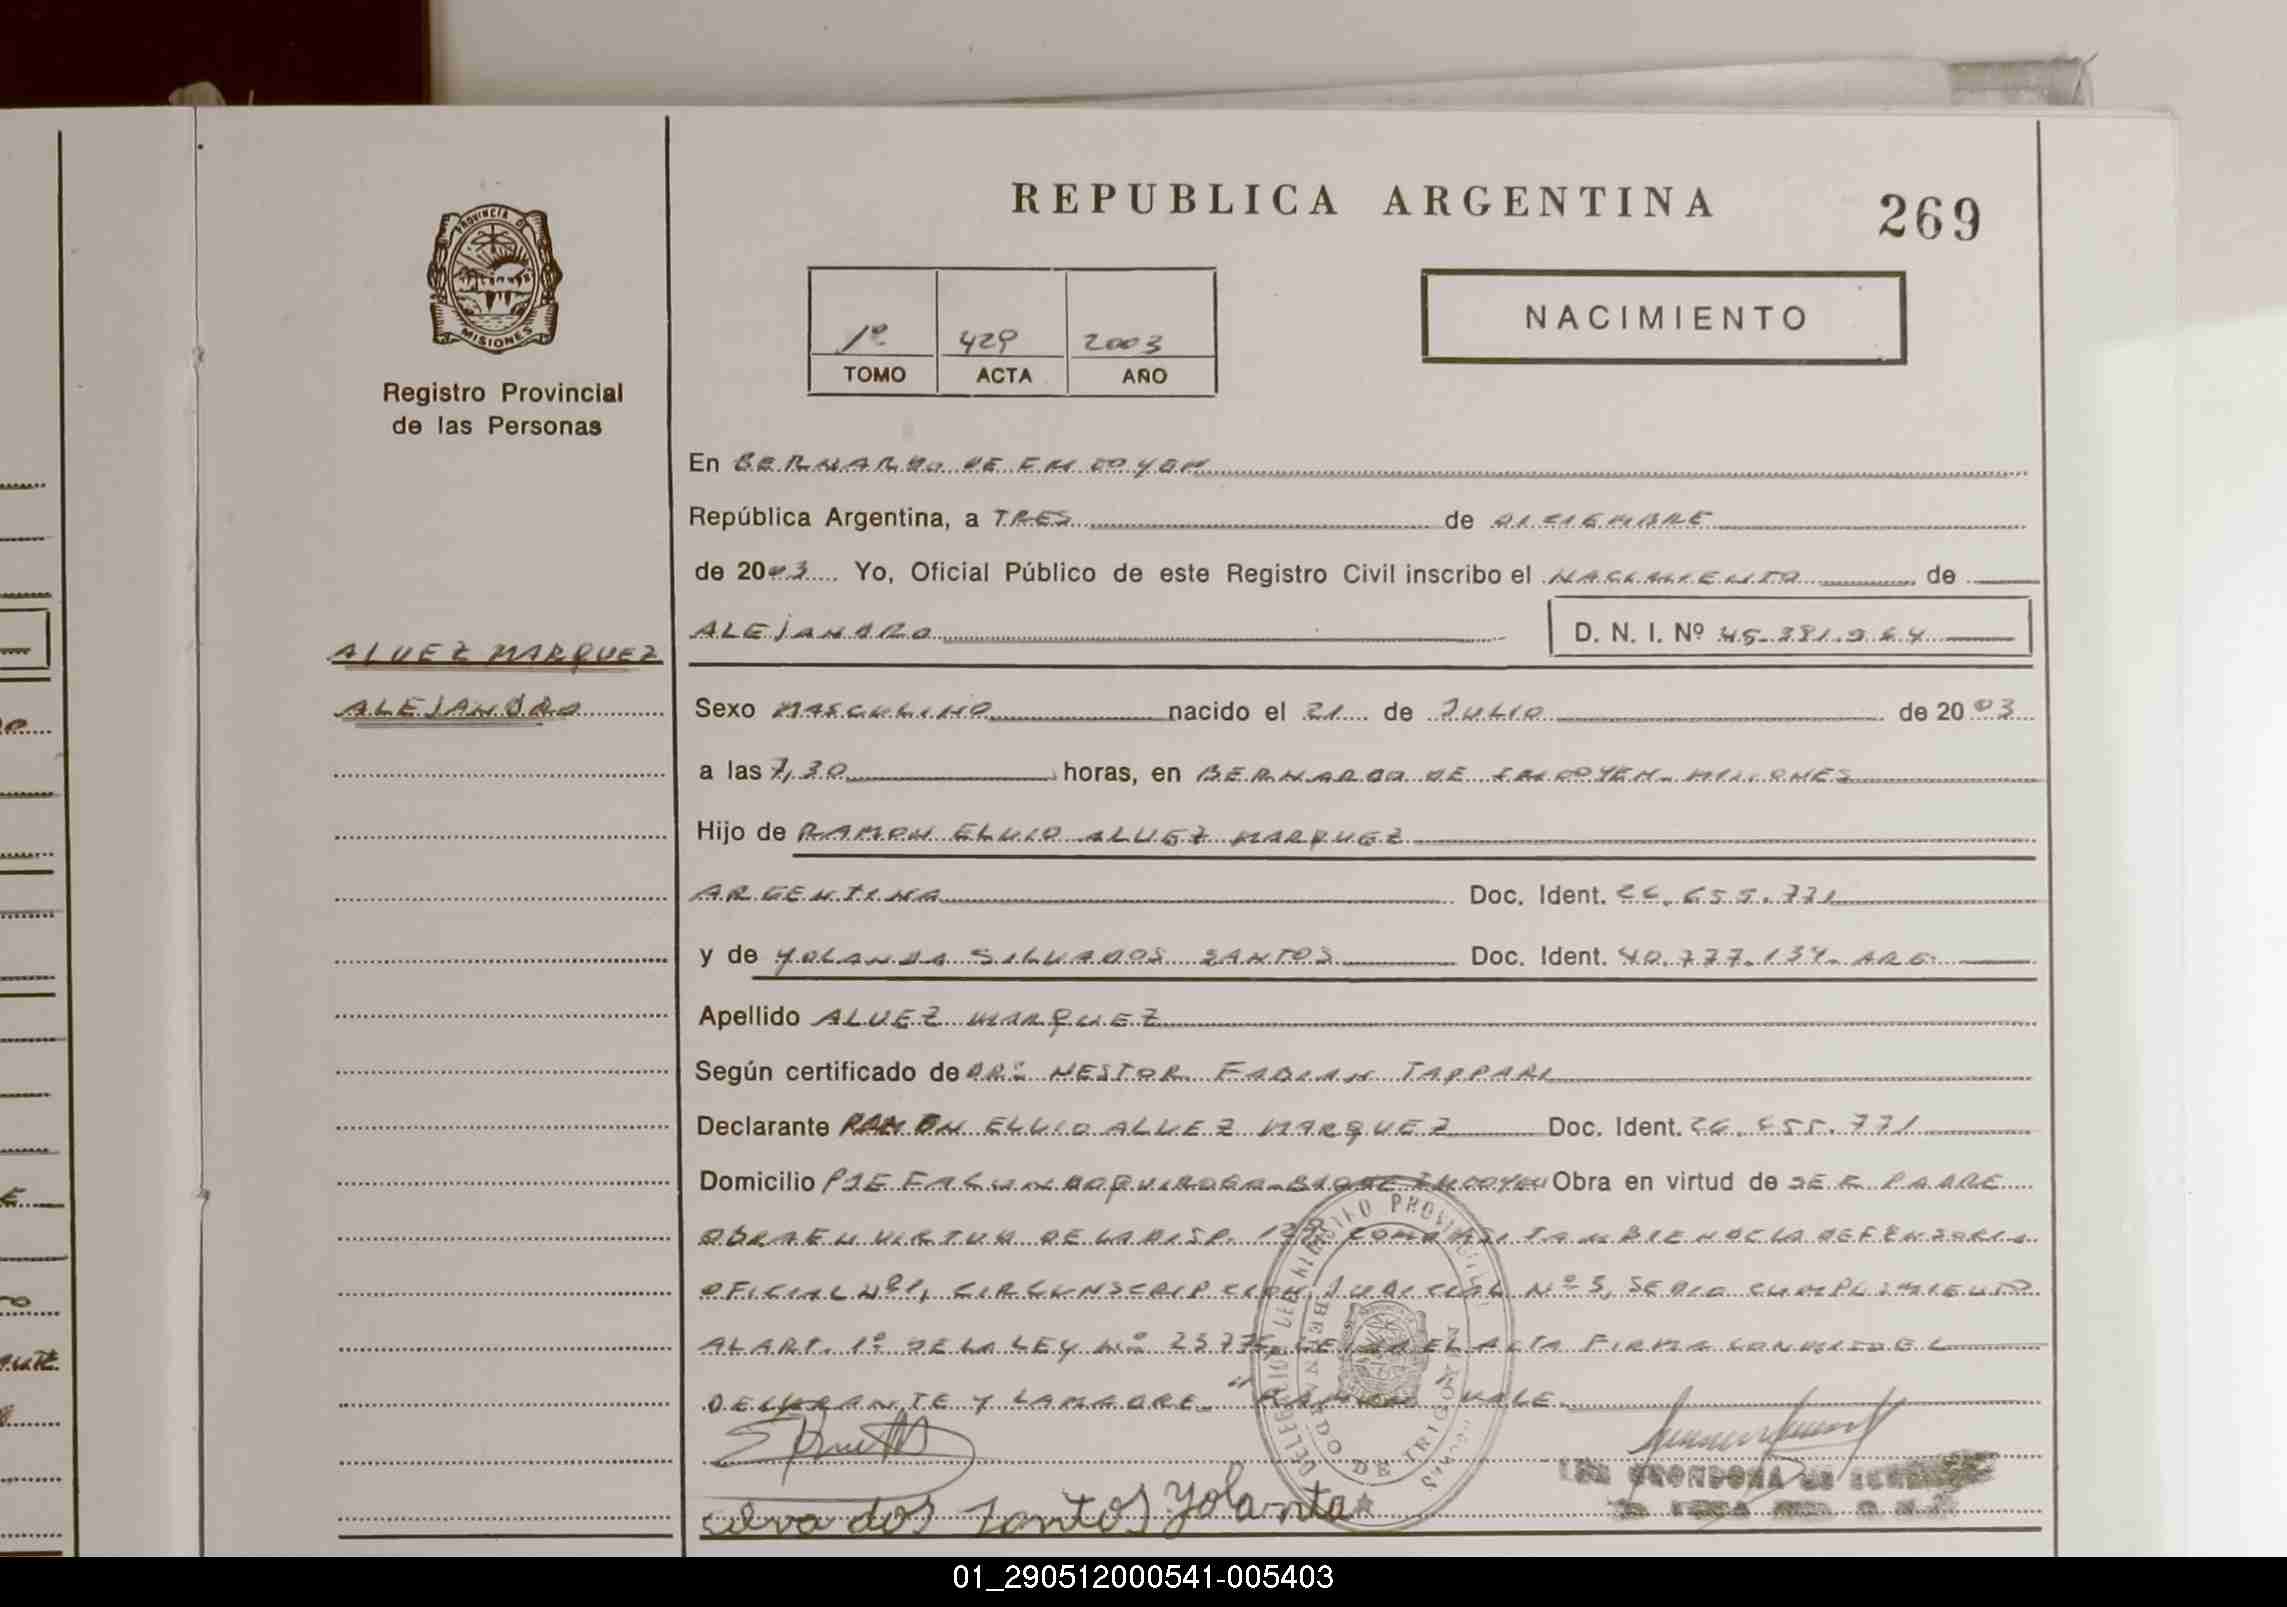 REPUBLICA ARGENTINA
269
PROVINCIA D
MISIONES
Registro Provincial
de las Personas
1º 429 2003
TOMO ACTA AÑO
NACIMIENTO
En BERNARDO DE
República Argentina, a TRES de DICIEMBRE
de 2003 Yo, Oficial Público de este Registro Civil inscribo el NACIMIENTO de
ALEJANDRO D. N. I. Nº
ALVEZ MARQUEZ
ALEJANDRO
Sexo MASCULINO nacido el 21 de JULIO de 2003
a las 7,30 horas, en BERNARDO DE IRIGOYEN. MISIONES
Hijo de RAMON ELVIO ALVEZ MARQUEZ
ARGENTINA Doc. Ident. 26.655.771
y de YOLANDA SILVA DOS SANTOS Doc. Ident. 40.777.134. ARG.
Apellido ALVEZ MARQUEZ
Según certificado de DR: NESTOR FABIAN TAPPARI
Declarante RAMON ELVIO ALVEZ MARQUEZ Doc. Ident. 26.655.771
Domicilio PJE FACUNDO QUIROGA Obra en virtud de SER PADRE
OBRA EN VIRTUD DE LA DISP. COMO ASI TAMBIEN DE LA DEFENSORIA
OFICIAL Nº1, CIRCUNSCRIPCION JUDICIAL Nº 3, SE DIO CUMPLIMIENTO
AL ART. 1º DE LA LEY Nº EL ACTA FIRMA CONMIGO EL
DECLARANTE Y LA MADRE. "RAMON" VALE.
silva dos santos Yolanta
01_290512000541-005403